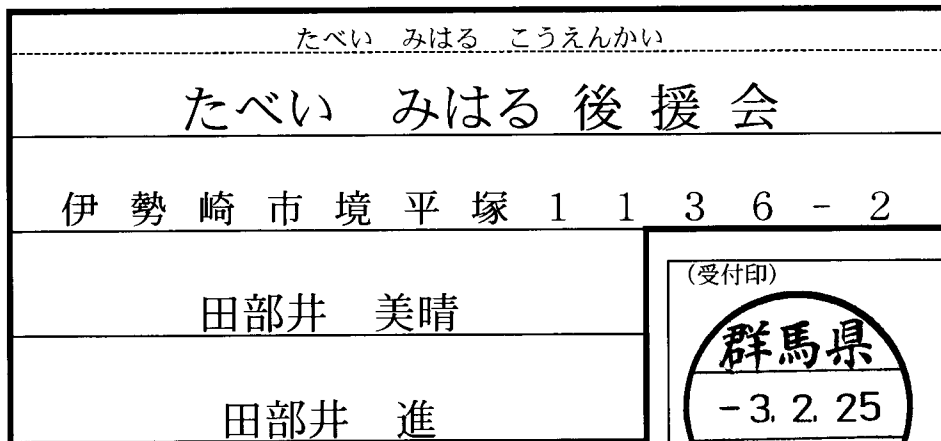 たべい みはる こうえんかい
たべい みはる 後援会
伊勢崎市境平塚1136-2
田部井 美晴
(受付印)
群馬県
田部井 進
-3. 2. 25